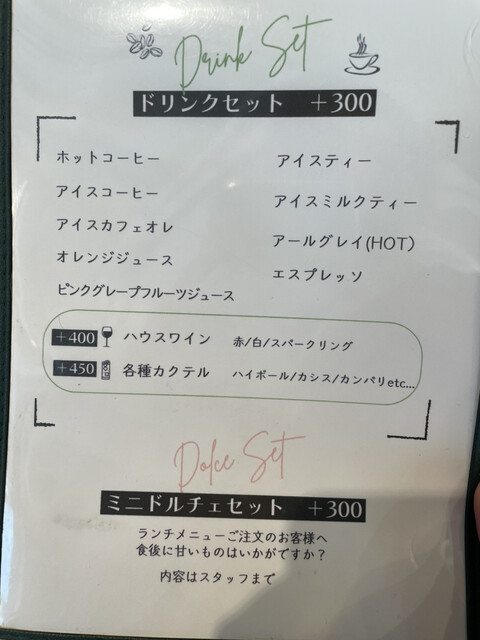 Drink Set
ドリンクセット +300
ホットコーヒー
アイスコーヒー
アイスカフェオレ
オレンジジュース
ピンクグレープフルーツジュース
アイスティー
アイスミルクティー
アールグレイ(HOT)
エスプレッソ
+400 ハウスワイン 赤/白/スパークリング
+450 各種カクテル ハイボール/カシス/カンパリetc...
Dolce Set
ミニドルチェセット +300
ランチメニューご注文のお客様へ
食後に甘いものはいかがですか？
内容はスタッフまで